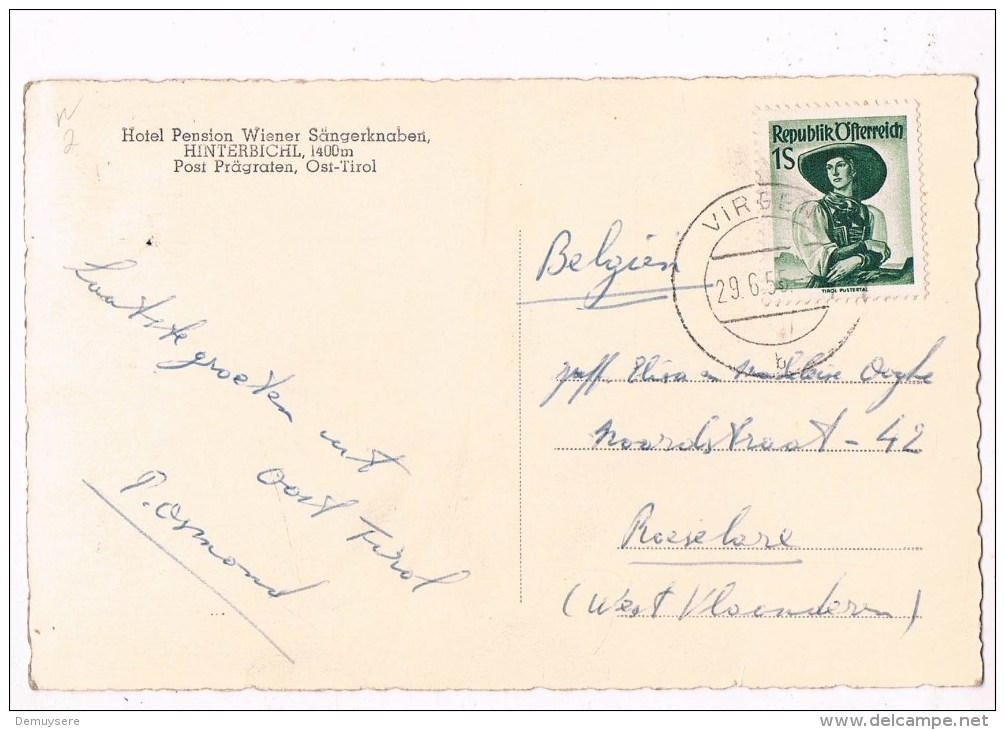 Hotel Pension Wiener Sängerknaben,
HINTERBICHL, 1400m
Post Prägraten, Ost-Tirol
Republik Österreich
1S
TIROL PUSTERTAL
VIRGEN
29.6.55
b
Belgien
Laatste groeten uit
Oost Tirol
P. Osmond
Juff. Elisa en
Noordstraat - 42
Roeselare
(West Vlaanderen)
Demuysere
www.delcampe.net